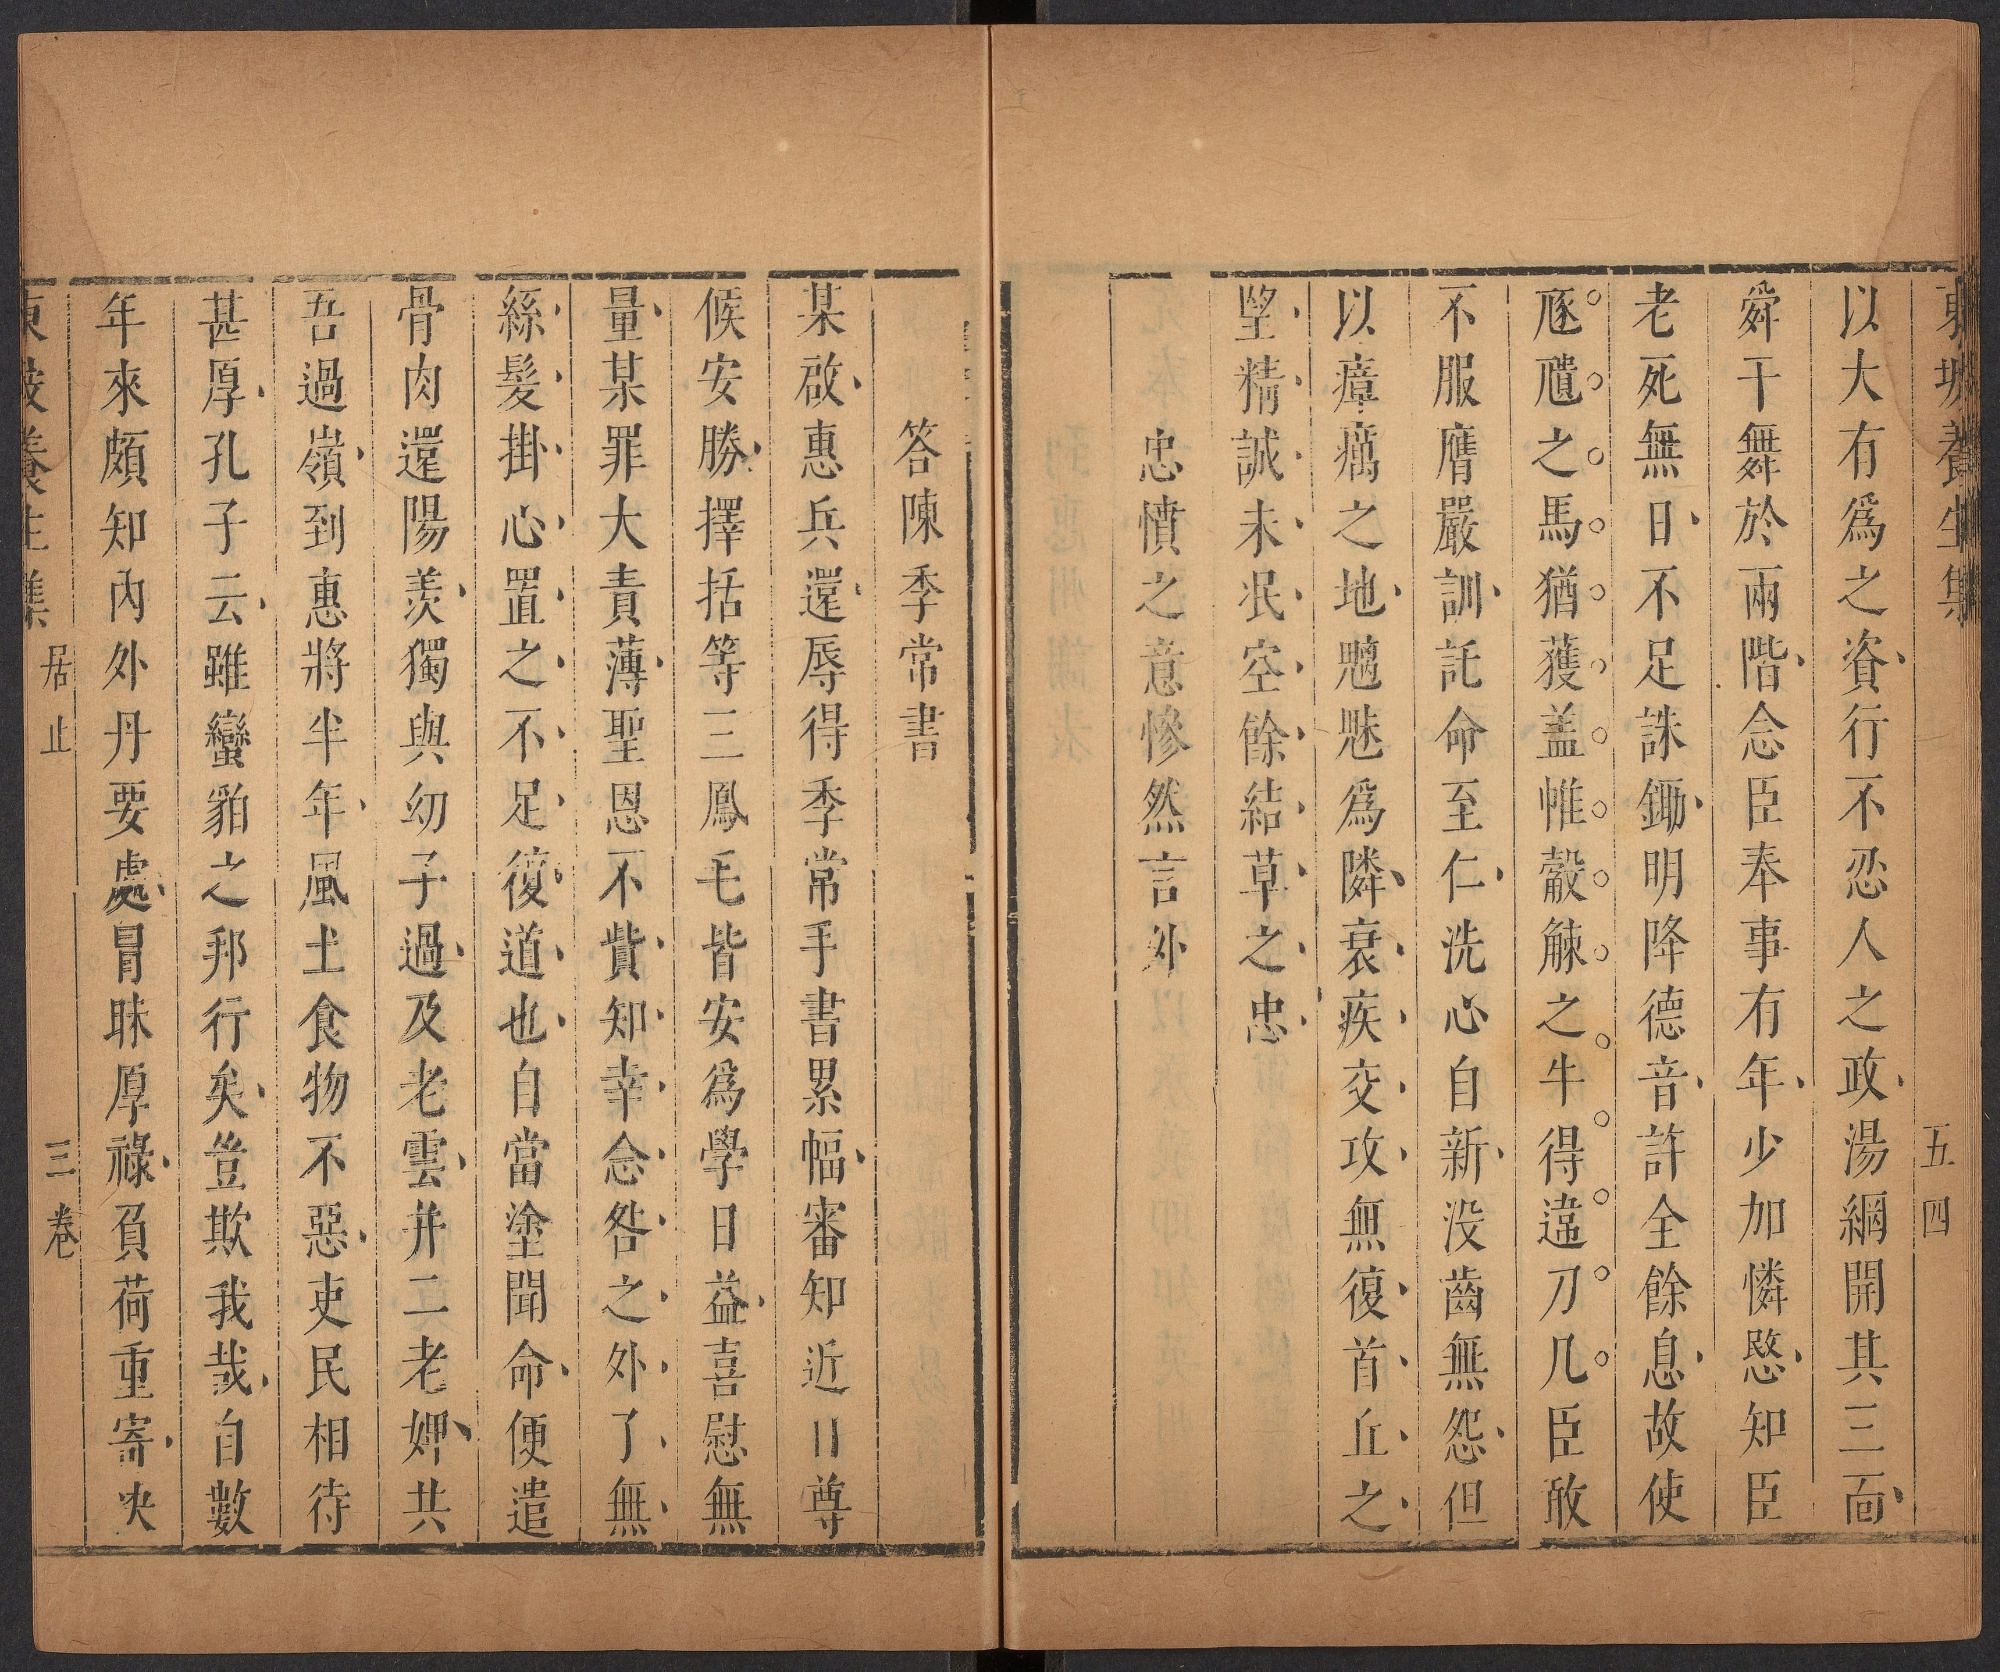 東坡養生集　五四
以大有爲之資行不忍人之政湯網開其三面
舜干舞於兩階念臣奉事有年少加憐愍知臣
老死無日不足誅鋤明降德音許全餘息故使
豗隤之馬猶獲盖惟觳觫之牛得違刀几臣敢
不服膺嚴訓託命至仁洗心自新没齒無怨但
以瘴癘之地魑魅爲隣衰疾交攻無復首丘之
望精誠未泯空餘結草之忠
忠憤之意慘然言外
答陳季常書
某啟惠兵還辱得季常手書累幅審知近日尊
候安勝擇括等三鳳毛皆安爲學日益喜慰無
量某罪大責薄聖恩不貲知幸念咎之外了無
絲髮掛心置之不足復道也自當塗聞命便遣
骨肉還陽羨獨與幼子過及老雲并二老婢共
吾過嶺到惠將半年風土食物不惡吏民相待
甚厚孔子云雖蠻貊之邦行矣豈欺我哉自數
年來頗知內外丹要處冒昧厚祿負荷重寄决
東坡養生集　居止　三卷